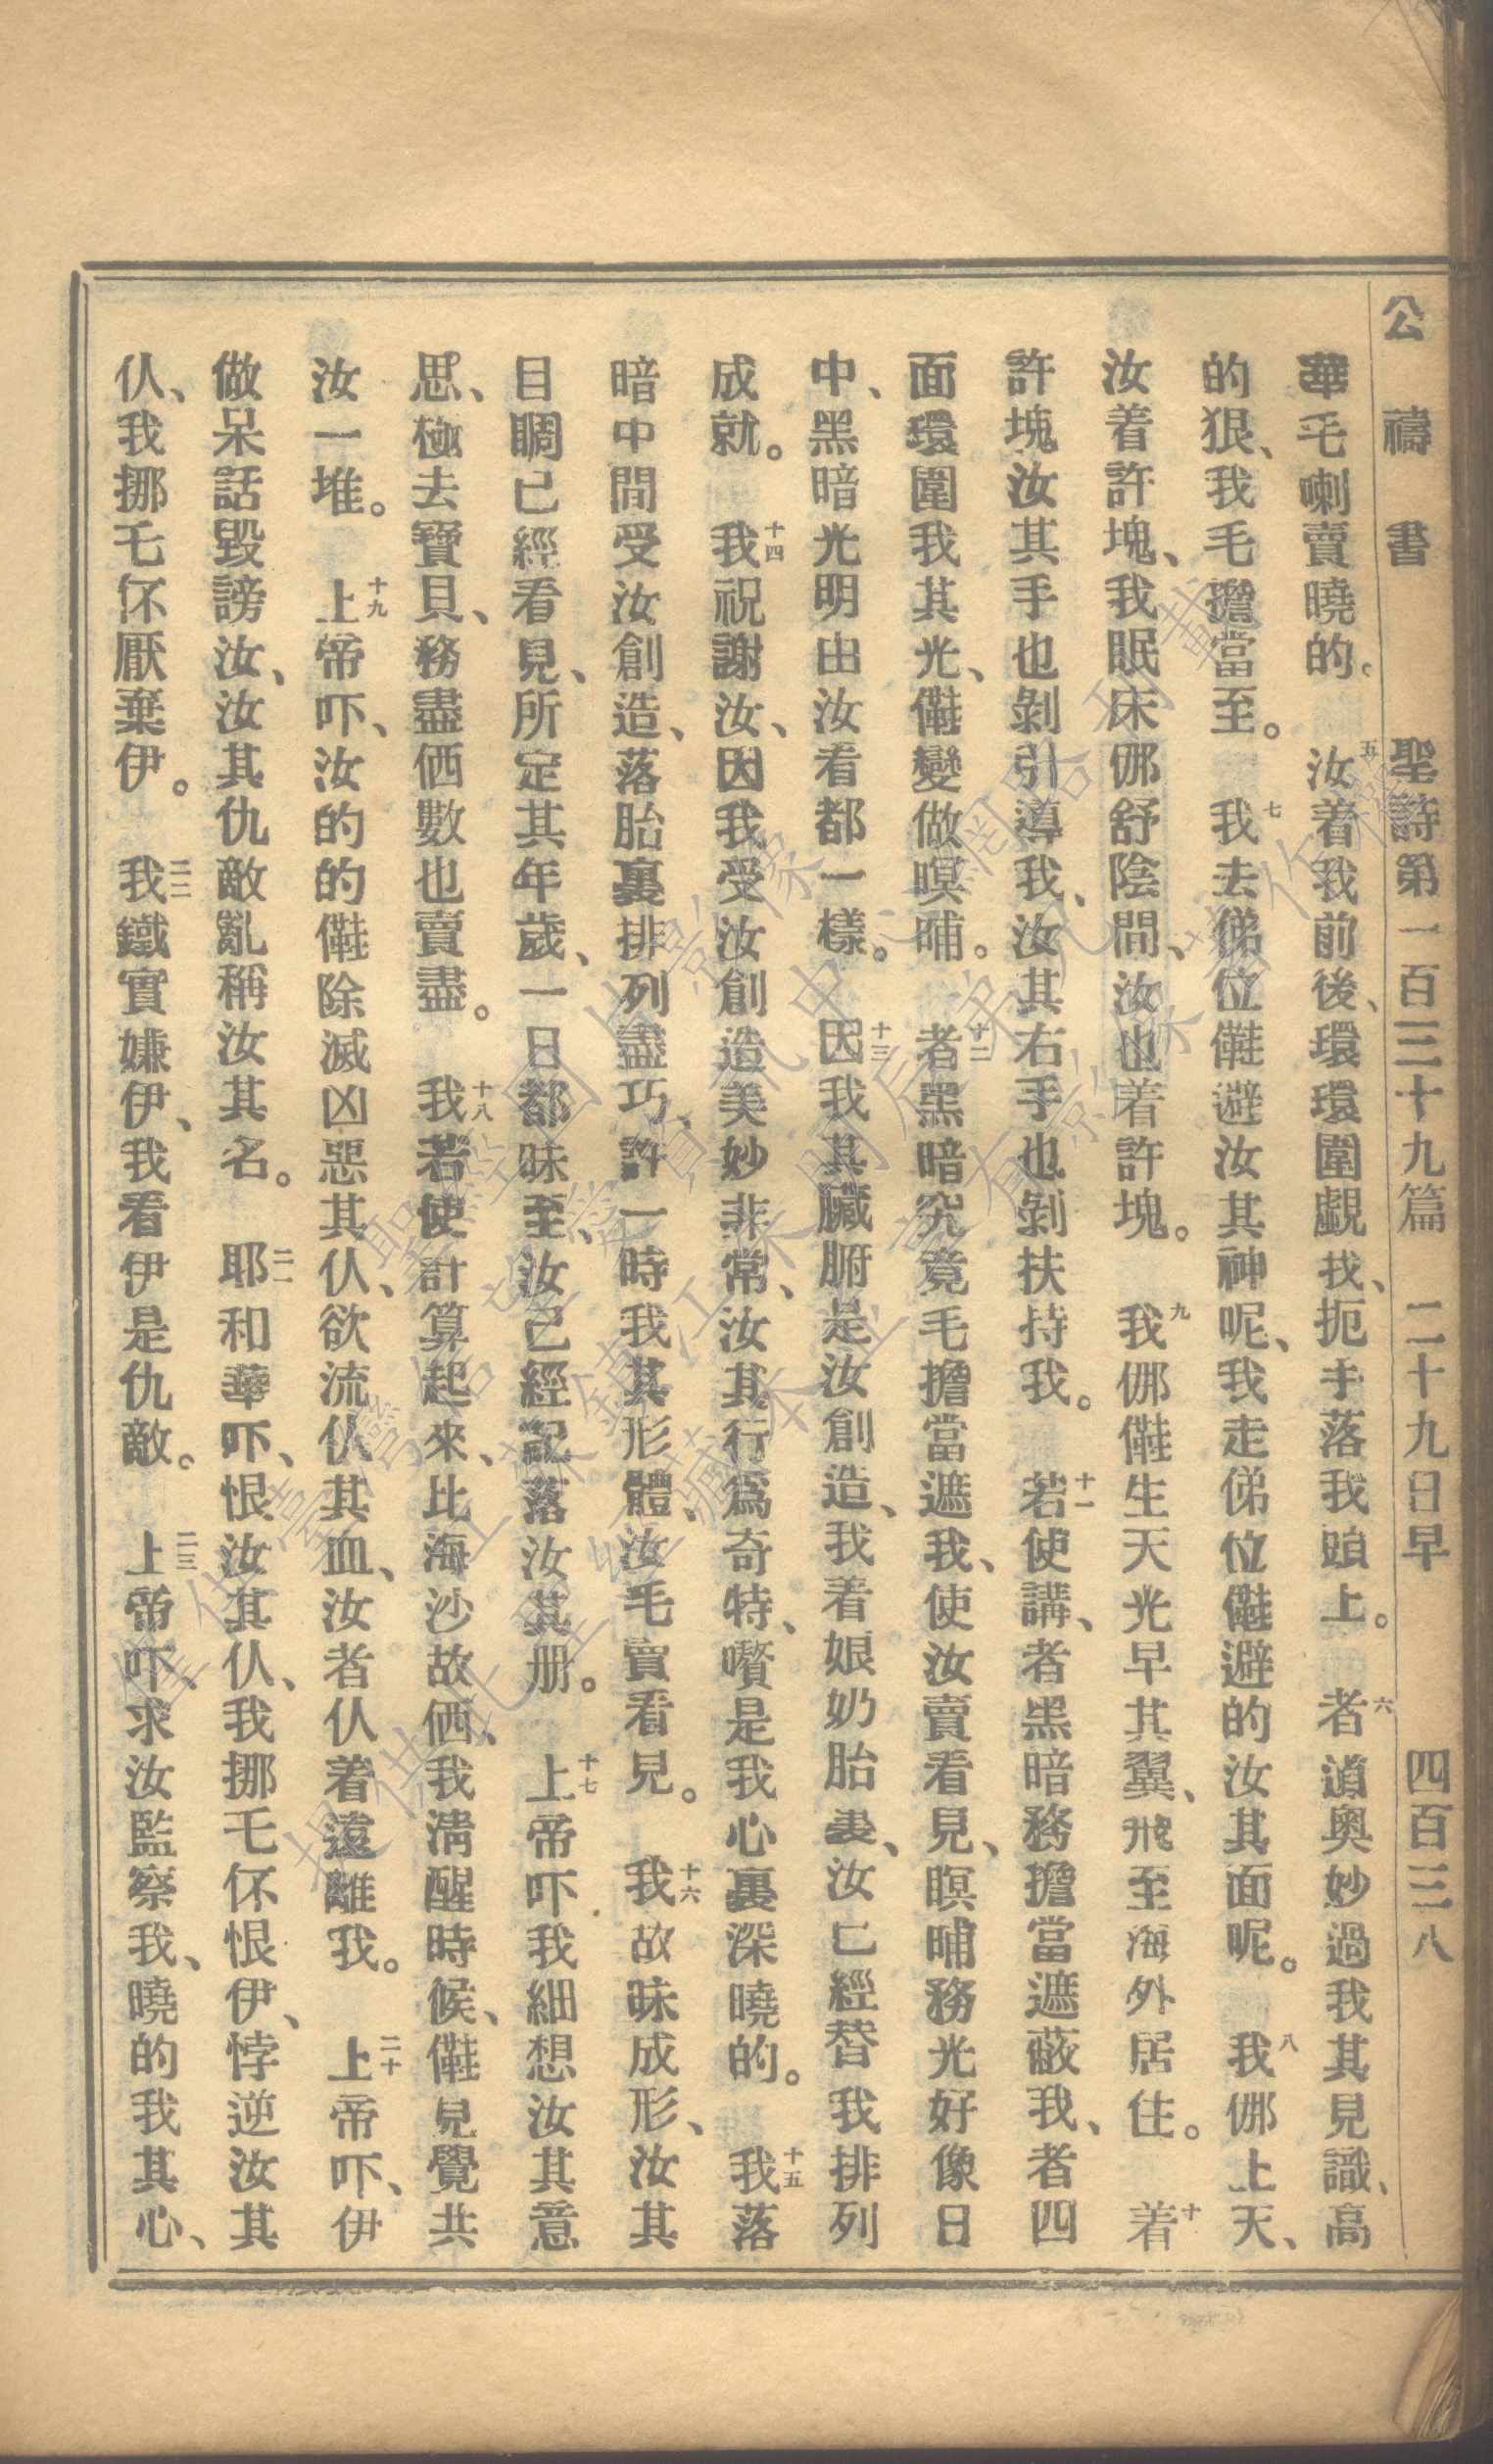 公禱書　聖詩第一百三十九篇　二十九日早　四百三八
華毛喇賣曉的。五汝着我前後、環環圍覷我、扼手落我頭上。六者道奧妙過我其見識、高
的狠、我毛擔當至。七我去俤位儺避汝其神呢、我走俤位儺避的汝其面呢。八我倻上天、
汝着許塊、我眠床倻舒陰間、汝也着許塊。九我倻儺生天光早其翼、飛至海外居住。十着
許塊汝其手也剝引導我、汝其右手也剝扶持我。十一若使講、者黑暗務擔當遮蔽我、者四
面環圍我其光、儺變做暝晡。十二者黑暗究竟毛擔當遮我、使汝賣看見、暝晡務光好像日
中、黑暗光明由汝看都一樣。十三因我其臟腑是汝創造、我着娘奶胎裏、汝已經替我排列
成就。十四我祝謝汝、因我受汝創造美妙非常、汝其行爲奇特、嚽是我心裏深曉的。十五我落
暗中間受汝創造、落胎裏排列盡巧、許一時我其形體、汝毛賣看見。十六我故昧成形、汝其
目睭已經看見、所定其年歲、一日都昧至、汝已經記落汝其册。十七上帝吓我細想汝其意
思、極去寶貝、務盡価數也賣盡。十八我若使計算起來、比海沙故価、我淸醒時候、儺見覺共
汝一堆。十九上帝吓、汝的的儺除滅凶惡其仈、欲流仈其血、汝者仈着遠離我。二十上帝吓、伊
做呆話毀謗汝、汝其仇敵亂稱汝其名。二一耶和華吓、恨汝其仈、我挪乇伓恨伊、悖逆汝其
仈、我挪乇伓厭棄伊。二二我鐵實嫌伊、我看伊是仇敵。二三上帝吓、求汝監察我、曉的我其心、